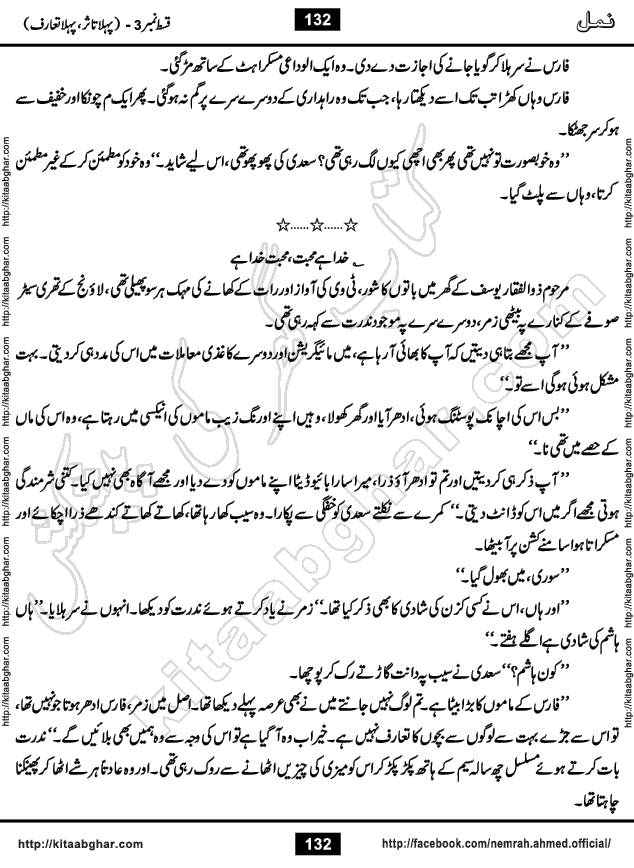 نمل 132 قسط نمبر 3 - (پہلا تاثر، پہلا تعارف)
فارس نے سر ہلا کر گویا جانے کی اجازت دے دی۔ وہ ایک الوداعی مسکراہٹ کے ساتھ مڑ گئی۔
فارس وہاں کھڑا تب تک اسے دیکھتا رہا، جب تک وہ راہداری کے دوسرے سرے پر گم نہ ہو گئی۔ پھر ایک دم چونکا اور خفیف سے
ہو کر سر جھٹکا۔
’’وہ خوبصورت تو نہیں تھی پھر بھی اچھی کیوں لگ رہی تھی؟ سعدی کی پھوپھو تھی، اس لیے شاید۔‘‘ وہ خود کو مطمئن کر کے غیر مطمئن
کرتا، وہاں سے پلٹ گیا۔
☆......☆......☆
؎ خدا ہے محبت، محبت خدا ہے
مرحوم ذوالفقار یوسف کے گھر میں باتوں کا شور، ٹی وی کی آواز اور رات کے کھانے کی مہک ہر سو پھیلی تھی، لاؤنج کے تھری سیٹر
صوفے کے کنارے پہ بیٹھی زمر، دوسرے سرے پہ موجود ندرت سے کہہ رہی تھی۔
’’آپ مجھے بتا ہی دیتیں کہ آپ کا بھائی آ رہا ہے، میں مائیگریشن اور دوسرے کاغذی معاملات میں اس کی مدد ہی کر دیتی۔ بہت
مشکل ہوئی ہو گی اسے تو۔‘‘
’’بس اس کی اچانک پوسٹنگ ہوئی، ادھر آیا اور گھر کھولا، وہیں اپنے اورنگ زیب ماموں کی انیکسی میں رہتا ہے، وہ اس کی ماں
کے حصے میں تھی نا۔‘‘
’’آپ ذکر ہی کر دیتیں اور تم تو ادھر آؤ ذرا، میرا سارا بائیو ڈیٹا اپنے ماموں کو دے دیا اور مجھے آگاہ بھی نہیں کیا۔ کتنی شرمندگی
ہوتی مجھے اگر میں اس کو ڈانٹ دیتی۔‘‘ کمرے سے نکلتے سعدی کو خفگی سے پکارا۔ وہ سیب کھا رہا تھا، کھاتے کھاتے کندھے ذرا اچکائے اور
مسکراتا ہوا سامنے کشن پر آ بیٹھا۔
’’سوری، میں بھول گیا۔‘‘
’’اور ہاں، اس نے کسی کزن کی شادی کا بھی ذکر کیا تھا۔‘‘ زمر نے یاد کرتے ہوئے ندرت کو دیکھا۔ انہوں نے سر ہلایا۔ ’’ہاں
ہاشم کی شادی ہے اگلے ہفتے۔‘‘
’’کون ہاشم؟‘‘ سعدی نے سیب پہ دانت گاڑتے رک کر پوچھا۔
’’فارس کے ماموں کا بڑا بیٹا ہے۔ تم لوگ نہیں جانتے میں نے بھی عرصہ پہلے دیکھا تھا۔ اصل میں زمر، فارس ادھر ہوتا جو نہیں تھا،
تو اس سے جڑے بہت سے لوگوں سے بچوں کا تعارف نہیں ہے۔ خیر اب وہ آ گیا ہے تو اس کی وجہ سے وہ ہمیں بھی بلائیں گے۔‘‘ ندرت
بات کرتے ہوئے مسلسل چھ سالہ سیم کے ہاتھ پکڑ پکڑ کر اس کو میزی کی چیزیں اٹھانے سے روک رہی تھی۔ اور وہ عادتاً ہر شے اٹھا کر پھینکنا
چاہتا تھا۔
http://kitaabghar.com 132 http://facebook.com/nemrah.ahmed.official/
http://kitaabghar.com http://kitaabghar.com http://kitaabghar.com http://kitaabghar.com http://kitaabghar.com http://kitaabghar.com
http://kitaabghar.com http://kitaabghar.com http://kitaabghar.com http://kitaabghar.com http://kitaabghar.com http://kitaabghar.com
کتاب گھر کی پیشکش
kitaabghar.com